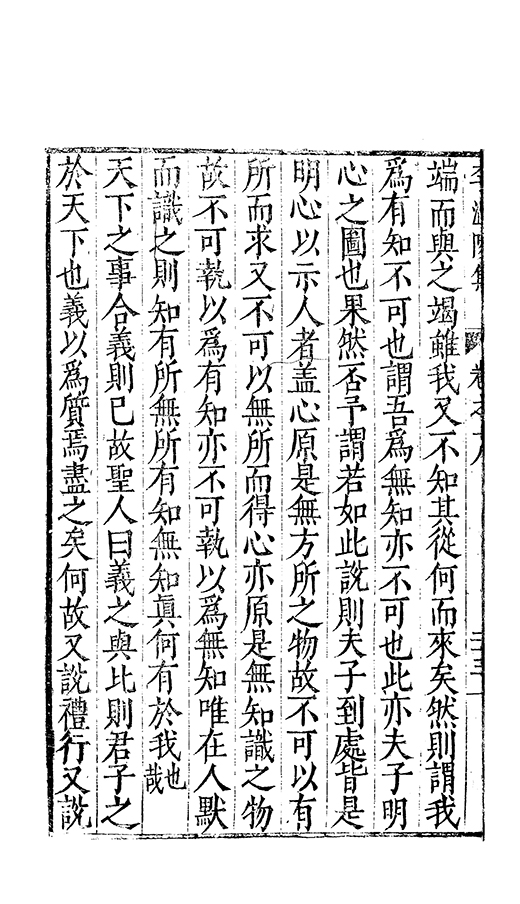 端而與之竭雖我又不知其從何而來矣然則謂我
爲有知不可也謂吾爲無知亦不可也此亦夫子明
心之圖也果然否予謂若如此說則夫子到處皆是
明心以示人者盖心原是無方所之物故不可以有
所而求又不可以無所而得心亦原是無知識之物
故不可執以爲有知亦不可執以爲無知唯在人默
而識之則知有所無所有知無知眞何有於我也哉
天下之事合義則已故聖人曰義之與比則君子之
於天下也義以爲質焉盡之矣何故又說禮行又說